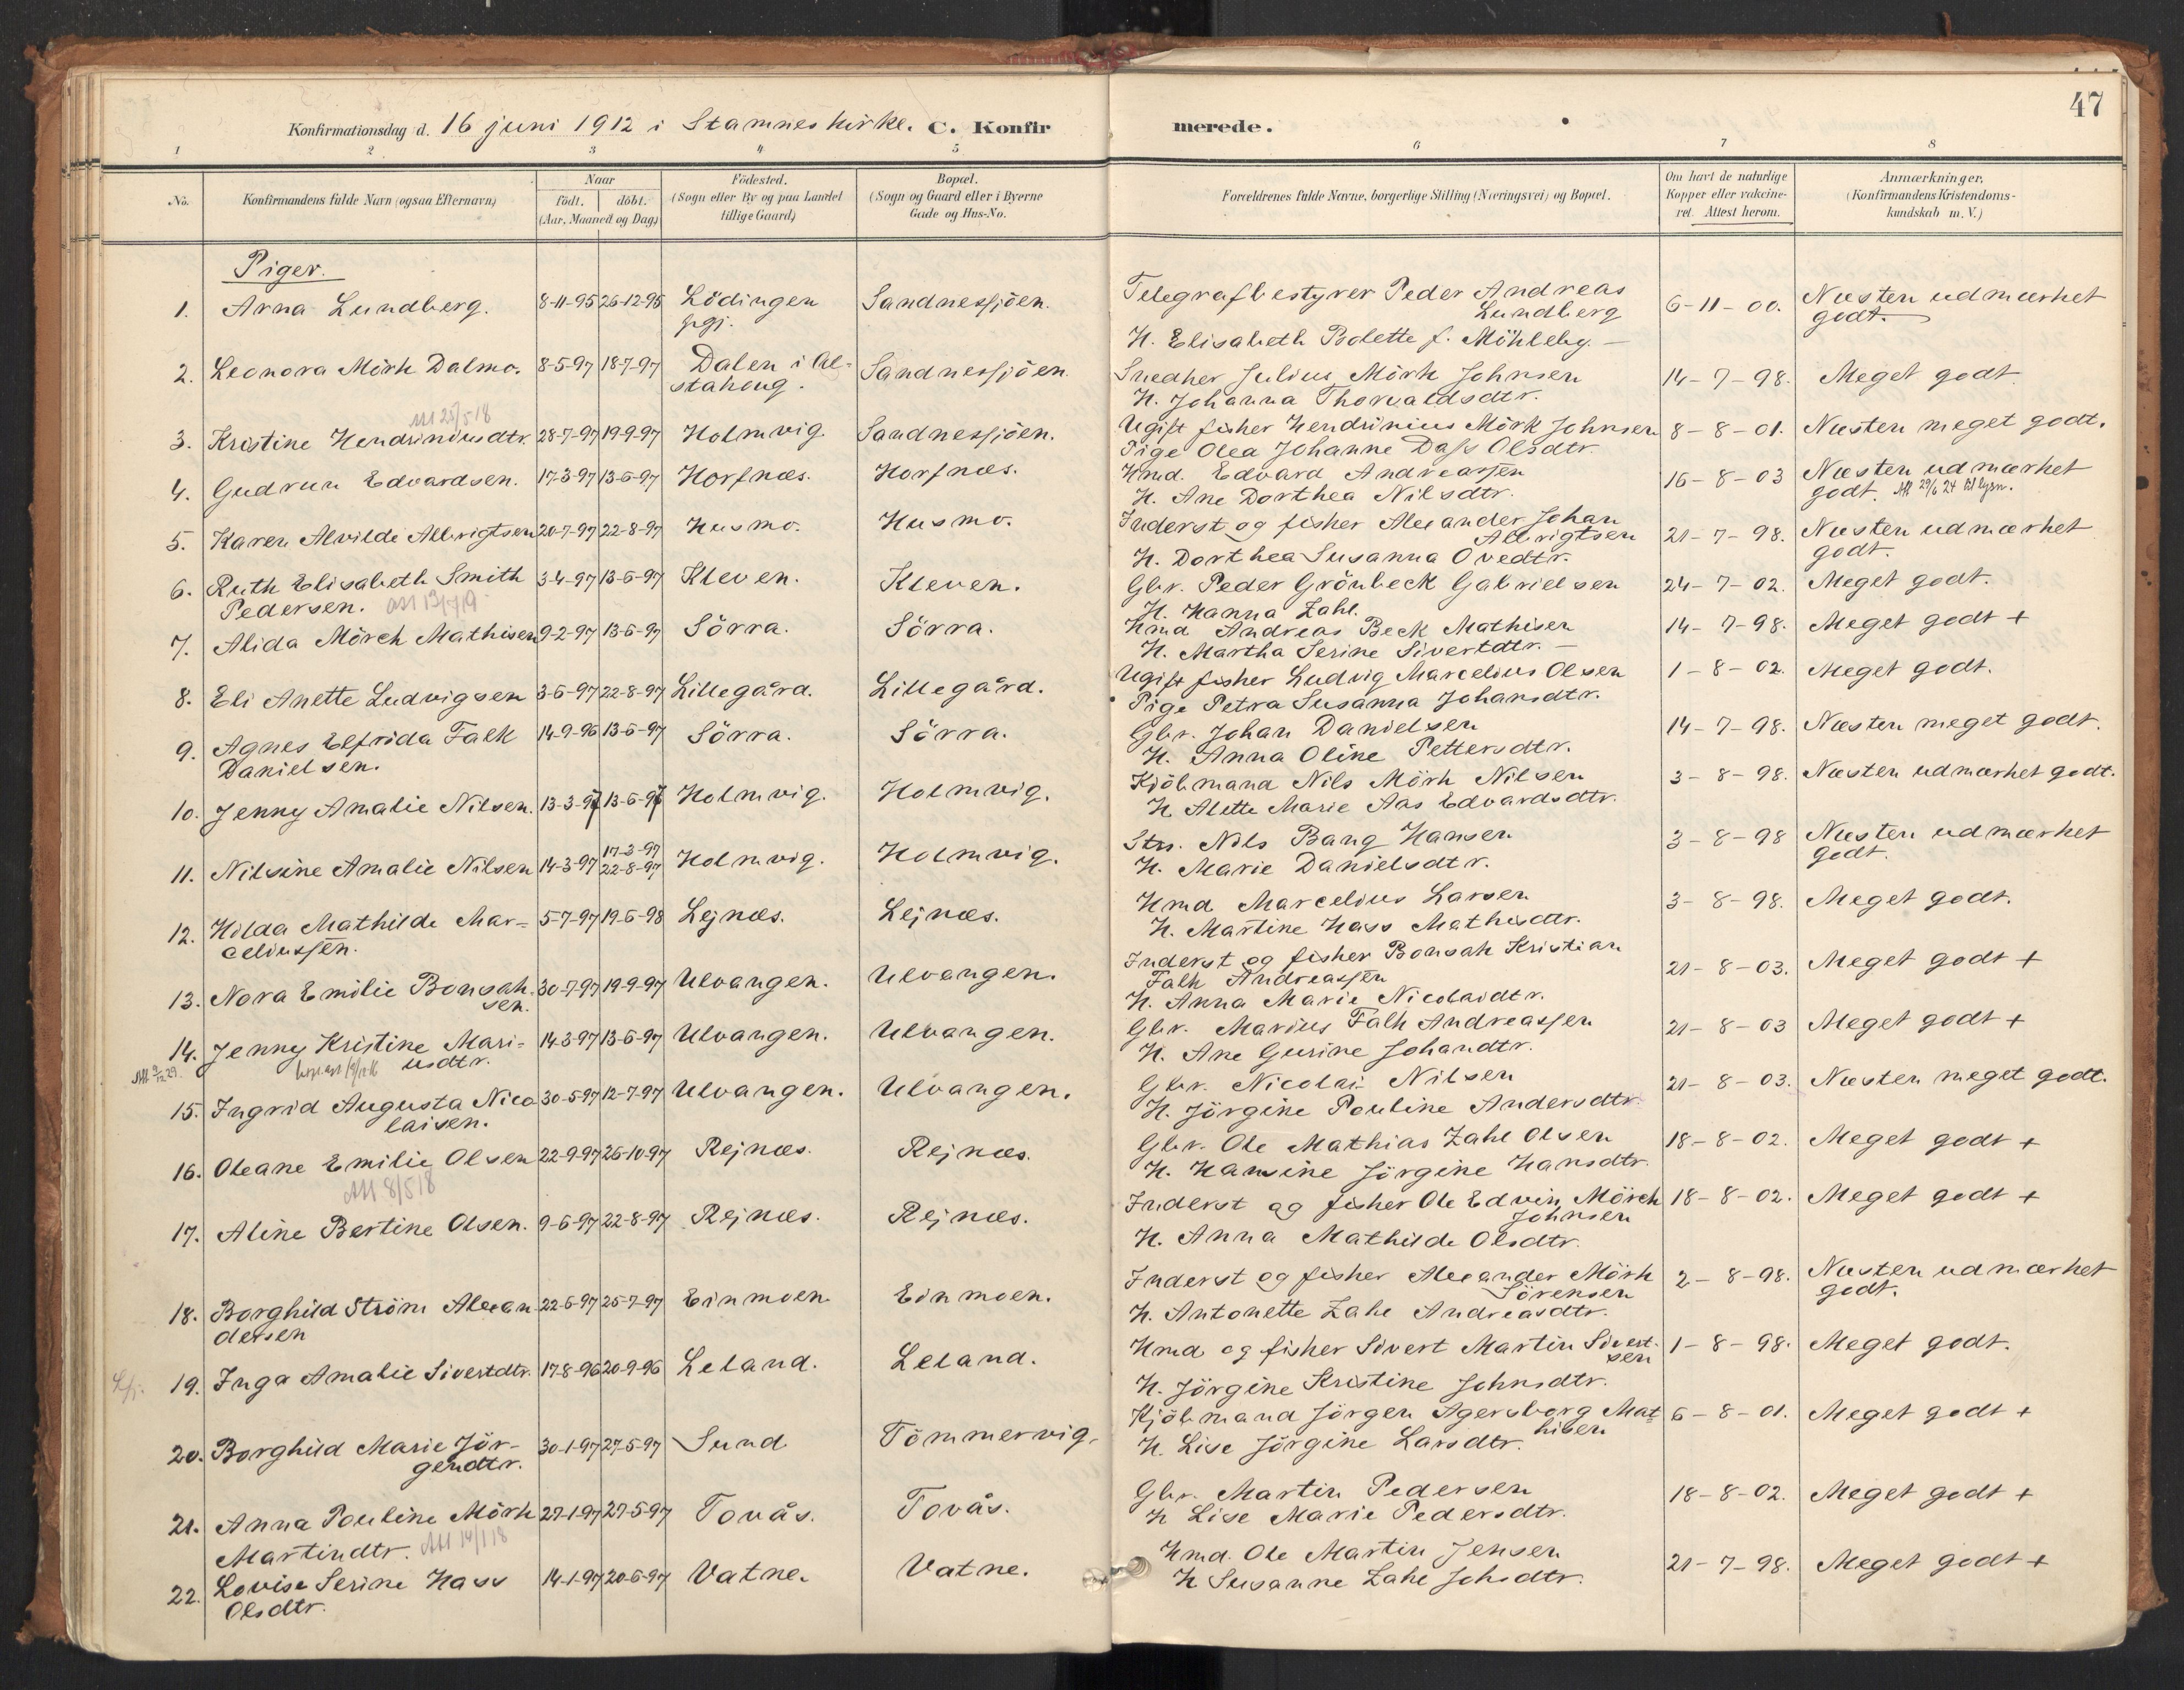 47
Konfirmationsdag d. 16 juni 1912 i Stamnes kirke. C. Konfirmerede.
1 2 3 4 5 6 7 8
No. Konfirmandens fulde Navn (ogsaa Efternavn) Naar født. döbt. (Aar, Maaned og Dag) Födested. (Sogn eller By og paa Landet tillige Gaard) Bopæl. (Sogn og Gaard eller i Byerne Gade og Hus-No. Forældrenes fulde Navne, borgerlige Stilling (Næringsvei) og Bopæl. Om havt de naturlige Kopper eller vakcineret. Attest herom. Anmærkninger, (Konfirmandens Kristendomskundskab m. V.)
Piger.
1. Arna Lundberg. 8-11-95 26-12-95 Lödingen pgj. Sandnessjöen. Telegrafbestyrer Peder Andreas Lundberg 6-11-00. Næsten udmærket godt.
H. Elisabeth Bolette f.
2. Leonora Mörk Dalmo. 8-5-97 18-7-97 Dalen i Alstahoug. Sandnessjöen. Snedker Julius Mörk Johnsen 14-7-98. Meget godt
H. Johanna Thorvaldsdtr.
3. Kristine Hendriniusdtr. 28-7-97 19-9-97 Holmvig. Sandnessjöen. Ugift fisker Hendrinius Mörk Johnsen 8-8-01. Næsten meget godt.
Att 25/5 18
Pige Olea Johanne Dass Olsdtr.
4. Gudrun Edvardsen. 17-3-97 13-6-97 Horfnæs. Horfnæs. Hmd. Edvard Andreassen 16-8-03 Næsten udmærket godt. Att 29/6 24 til lysn.
H. Ane Dorthea Nilsdtr.
5. Karen Alvilde Albrigtsen 20-7-97 22-8-97 Husmo. Husmo. Inderst og fisker Alexander Johan Albrigtsen 21-7-98. Næsten udmærket godt.
H. Dorthea Susanna Ovedtr.
6. Ruth Elisabeth Smith Pedersen. 3-4-97 13-6-97 Kleven. Kleven. Gbr. Peder Grönbeck Gabrielsen 24-7-02. Meget godt.
H. Hanna Zahl.
7. Alida Mörch Mathisen 9-2-97 13-6-97 Sörra. Sörra. Hmd Andreas Beck Mathisen 14-7-98. Meget godt +
H. Martha Serine Sivertdtr. —
8. Eli Anette Ludvigsen 3-6-97 22-8-97 Lillegård. Lillegård. Ugift fisker Ludvig Marcelius Olsen 1-8-02. Meget godt.
Pige Petra Susanna Johansdtr.
9. Agnes Elfrida Falk Danielsen. 14-9-96 13-6-97 Sörra. Sörra. Gbr. Johan Danielsen 14-7-98. Næsten meget godt.
H. Anna Oline Pettersdtr.
10. Jenny Amalie Nilsen. 13-3-97 13-6-97 Holmvig. Holmvig. Kjöbmand Nils Mörk Nilsen 3-8-98. Næsten udmærket godt.
H. Alette Marie Aas Edvardsdtr.
11. Nilsine Amalie Nilsen 14-3-97 17-3-97 22-8-97 Holmvig. Holmvig. Str. Nils Bang Hansen 3-8-98 Næsten udmærket godt.
H. Marie Danielsdtr.
12. Hilda Mathilde Marceliussen. 5-7-97 19-6-98 Lejnæs. Lejnæs. Hmd. Marcelius Larsen 3-8-98. Meget godt.
H. Martine Hass Mathisdtr.
13. Nora Emilie Bonsaksen. 30-7-97 19-9-97 Ulvangen. Ulvangen. Inderst og fisker Bonsak Kristian Falk Andreassen 21-8-03. Meget godt +
H. Anna Marie Nicolaidtr.
14. Jenny Kristine Mariusdtr. 14-3-97 13-6-97 Ulvangen. Ulvangen. Gbr. Marius Falk Andreassen 21-8-03 Meget godt +
H. Ane Gurine Johandtr.
15. Ingrid Augusta Nicolaisen. 30-5-97 12-7-97 Ulvangen. Ulvangen. Gbr. Nicolai Nilsen 21-8-03. Næsten meget godt.
H. Jörgine Pouline Andersdtr.
16. Oleane Emilie Olsen 22-9-97 26-10-97 Rejnæs. Rejnæs. Gbr. Ole Mathias Zahl Olsen 18-8-02. Meget godt +
Att 8/5 18
H. Hansine Jörgine Hansdtr.
17. Aline Bertine Olsen. 9-6-97 22-8-97 Rejnæs. Rejnæs. Inderst og fisker Ole Edvin Mörch Johnsen 18-8-02. Meget godt +
H. Anna Mathilde Olsdtr.
18. Borghild Ström Alexandersen 22-6-97 25-7-97 Einmoen. Einmoen. Inderst og fisker Alexander Mörk Sörensen 2-8-98. Næsten udmærket godt.
H. Antonette Zahl Andreasdtr.
19. Inga Amalie Sivertdtr. 17-8-96 20-9-96 Leland. Leland. Hmd og fisker Sivert Martin Sivertsen 1-8-98. Meget godt.
H. Jörgine Kristine Johnsdtr.
20. Borghild Marie Jörgendtr. 30-1-97 27-5-97 Sund Tömmervig. Kjöbmand Jörgen Agersborg Mathisen 6-8-01. Meget godt +
H. Lise Jörgine Larsdtr.
21. Anna Pouline Mörk Martindtr. 27-1-97 27-5-97 Tovås. Tovås. Gbr. Martin Pedersen 18-8-02. Meget godt +
Att 14/1 18
H Lise Marie Pedersdtr.
22. Lovise Serine Hass Olsdtr. 14-1-97 20-6-97 Vatne. Vatne. Hmd. Ole Martin Jensen 21-7-98. Meget godt +
H Susanne Zahl Johsdtr.